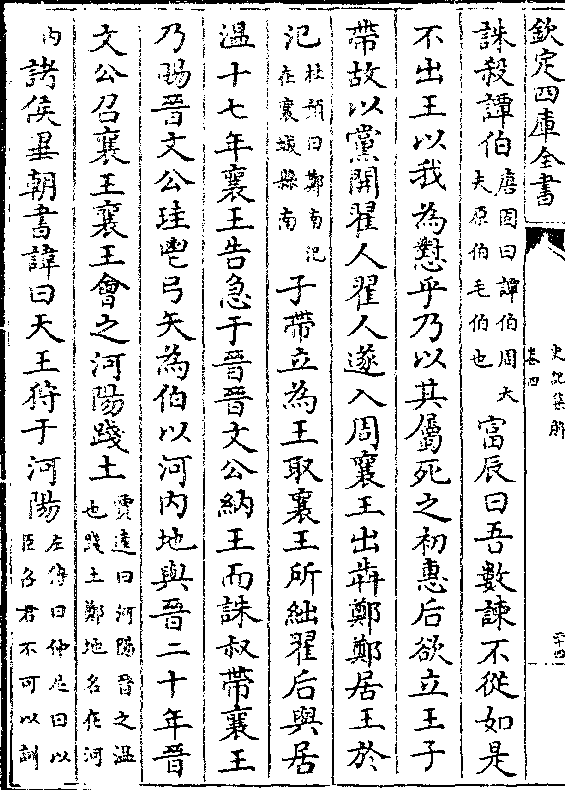 欽定四庫全書
史記集解
卷四
二十四
誅殺譚伯唐固曰譚伯周大夫原伯毛伯也富辰曰吾數諫不從如是
不出王以我為懟乎乃以其屬死之初惠后欲立王子
帶故以黨開翟人翟人遂入周襄王出犇鄭鄭居王於
氾杜預曰鄭南氾在襄城縣南子帶立為王取襄王所絀翟后與居
溫十七年襄王告急于晉晉文公納王而誅叔帶襄王
乃賜晉文公珪鬯弓矢為伯以河內地與晉二十年晉
文公召襄王襄王會之河陽踐土賈逵曰河陽晉之溫也踐土鄭地名在河
內諸侯畢朝書諱曰天王狩于河陽左傳曰仲尼曰以臣召君不可以訓